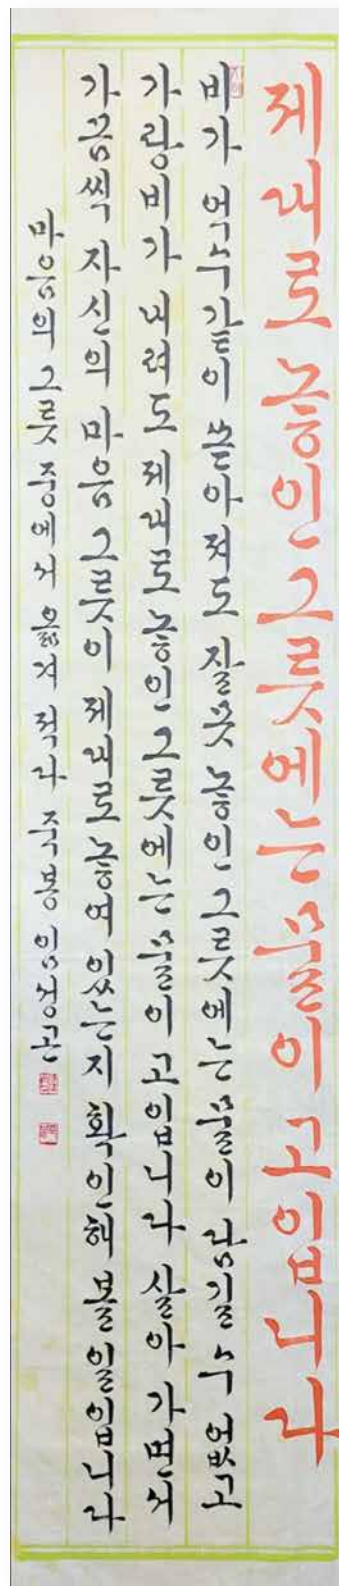 제대로 놓인 그릇에는 물이 고입니다
비가 억수같이 쏟아져도 잘못 놓인 그릇에는 물이 담길 수 없고
가랑비가 내려도 제대로 놓인 그릇에는 물이 고입니다 살아가면서
가끔씩 자신의 마음 그릇이 제대로 놓여 있는지 확인해 볼 일입니다
마음의 그릇 중에서 옮겨 적다 죽봉 임성곤